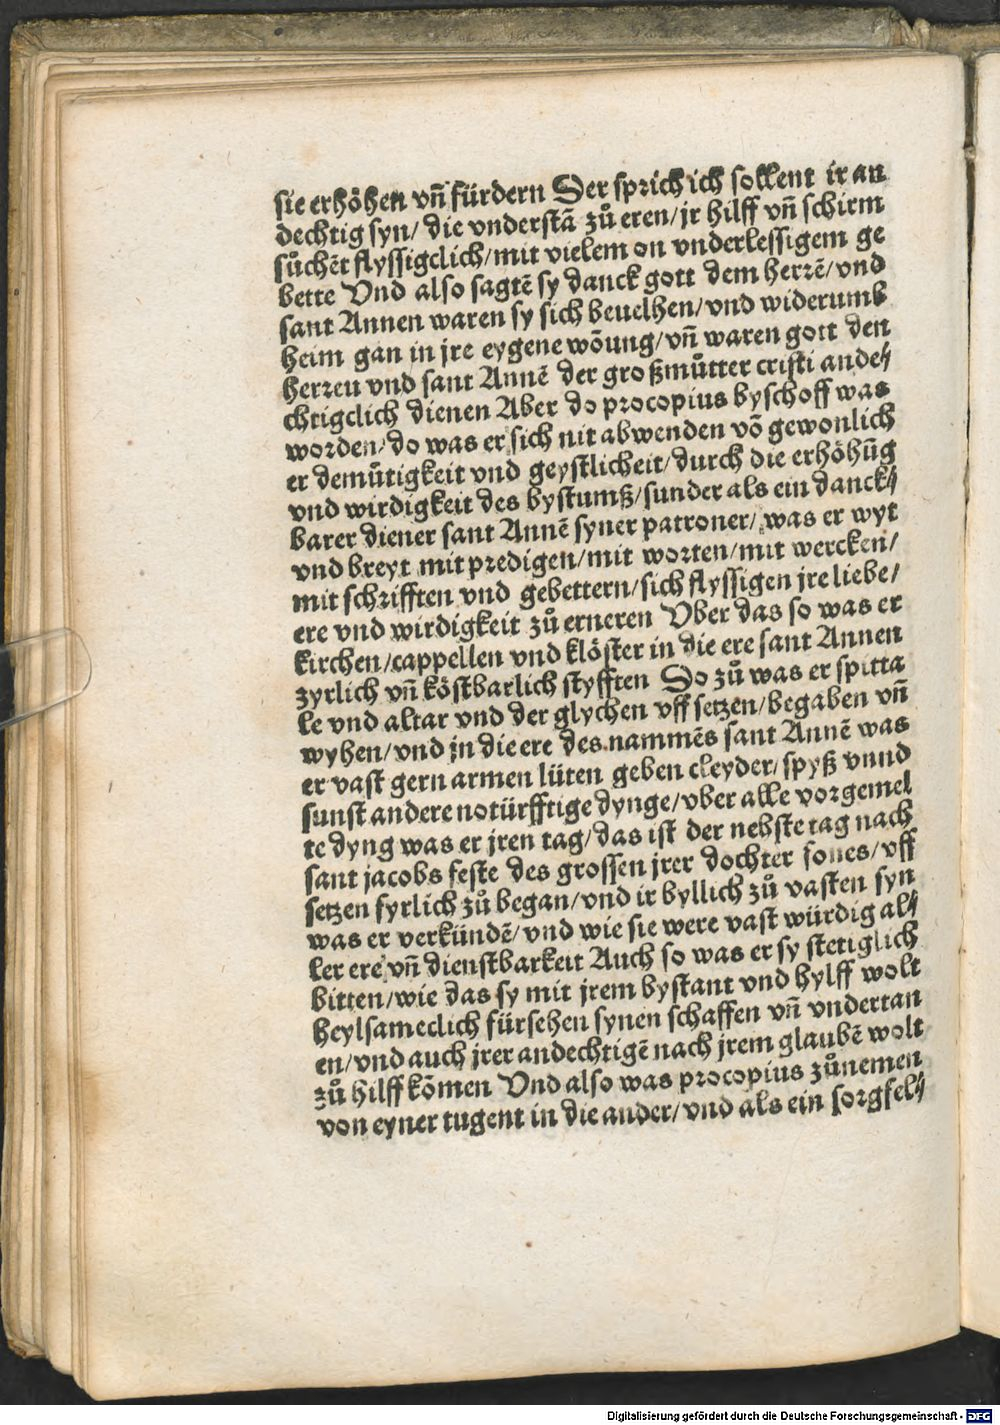 sie erhöhen vñ fürdern Der sprich ich sollent ir an
dechtig syn/ die vnderstā zů eren/ jr hilff vñ schirm
sůchēt flyssigclich/ mit vielem on vnderlessigem ge
bette Vnd also sagtē sy danck gott dem herrē/ vnd
sant Annen waren sy sich beuelhen/ vnd widerumb
heim gan in jre eygene wōung/ vñ waren gott den
herren vnd sant Annē der großmůtter cristi ande⸗
chtigclich dienen Aber do procopius byschoff was
worden/ do was er sich nit abwenden vō gewonlich
er demůtigkeit vnd geystlicheit/ durch die erhöhūg
vnd wirdigkeit des bystumß/ sunder als ein danck⸗
barer diener sant Annē syner patroner/ was er wyt
vnd breyt mit predigen/ mit worten/ mit wercken/
mit schrifften vnd gebettern/ sich flyssigen jre liebe/
ere vnd wirdigkeit zů erneren Vber das so was er
kirchen/ cappellen vnd klöster in die ere sant Annen
zyrlich vñ köstbarlich styfften So zů was er spitta
le vnd altar vnd der glychen vff setzen/ begaben vñ
wyhen/ vnd jn die ere des nammēs sant Annē was
er vast gern armen lüten geben cleyder/ spyß vnnd
sunst andere notürfftige dynge/ vber alle vorgemel
te dyng was er jren tag/ das ist der nehste tag nach
sant jacobs feste des grossen jrer dochter sones/ vff
setzen fyrlich zů began/ vnd ir byllich zů vasten syn
was er verkündē/ vnd wie sie were vast würdig al⸗
ler ere vñ dienstbarkeit Auch so was er sy stetiglich
bitten/ wie das sy mit jrem bystant vnd hylff wolt
heylsameclich fürsehen synen schaffen vñ vndertan
en/ vnd auch jrer andechtigē nach jrem glaubē wolt
zů hilff kōmen Vnd also was procopius zůnemen
von eyner tugent in die ander/ vnd als ein sorgfel⸗
Digitalisierung gefördert durch die Deutsche Forschungsgemeinschaft - DFG